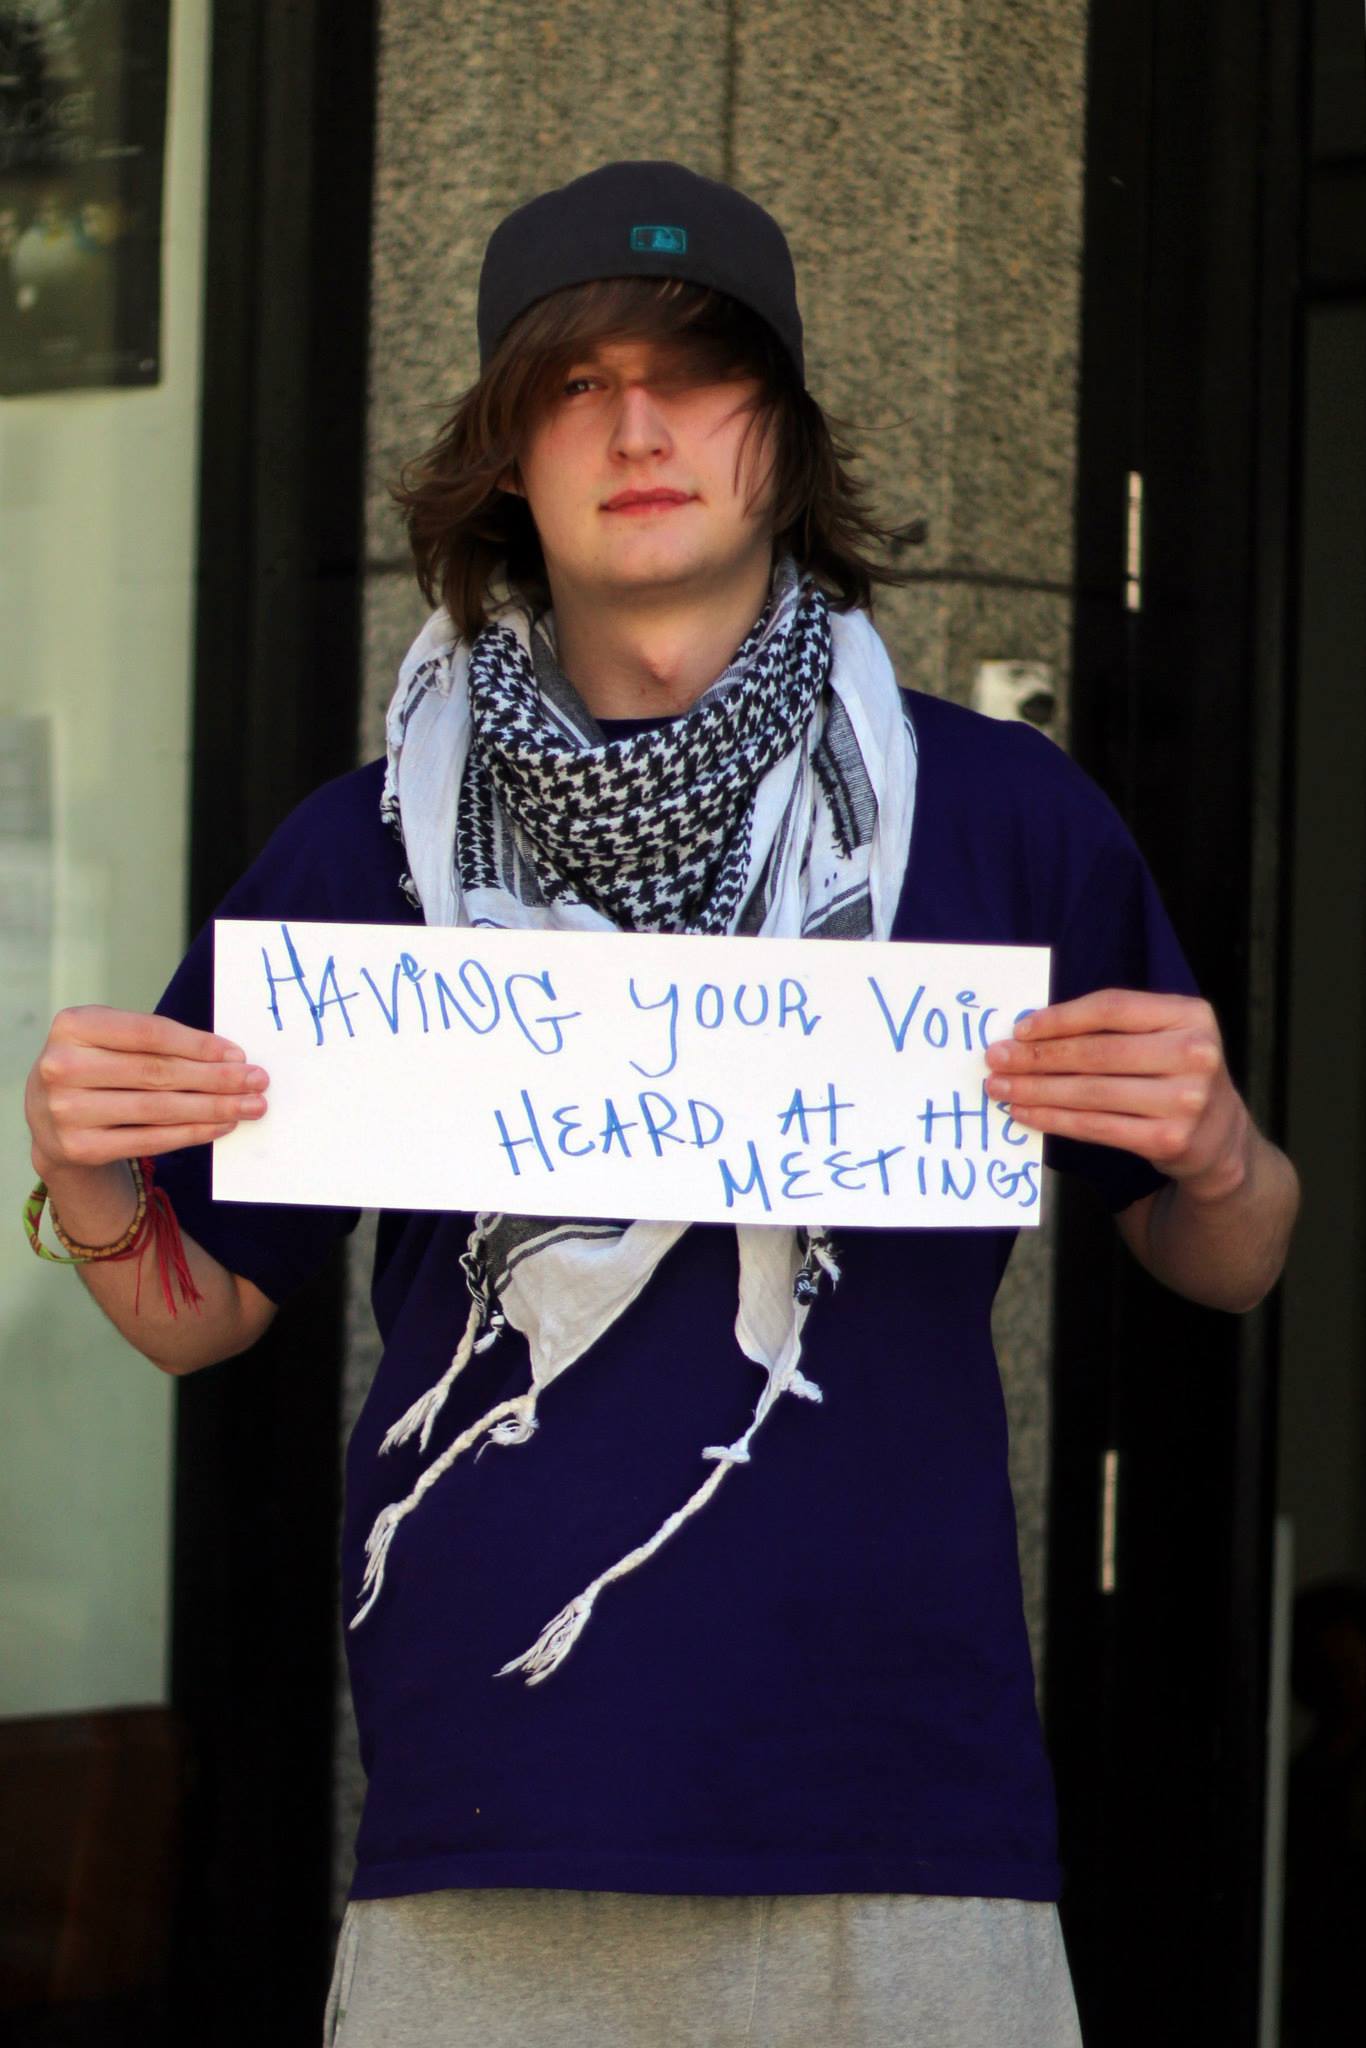 HAViNG YOUR VoiCe
HEARD At tHE
MEETINGS